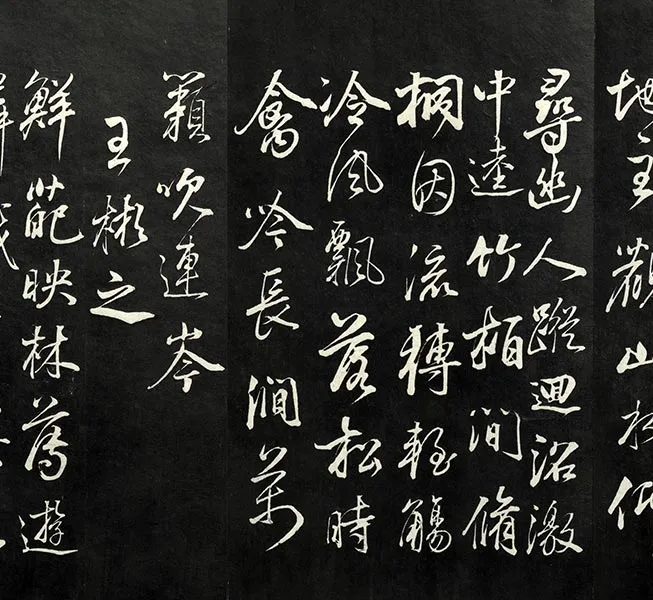 地主觀山水仰
尋幽人蹤迴沼激
中逵竹柏澗脩
桐因流轉輕觴
冷風飄落松時
禽吟長澗萬
籟吹連岑
王彬之
鮮葩映林薄遊